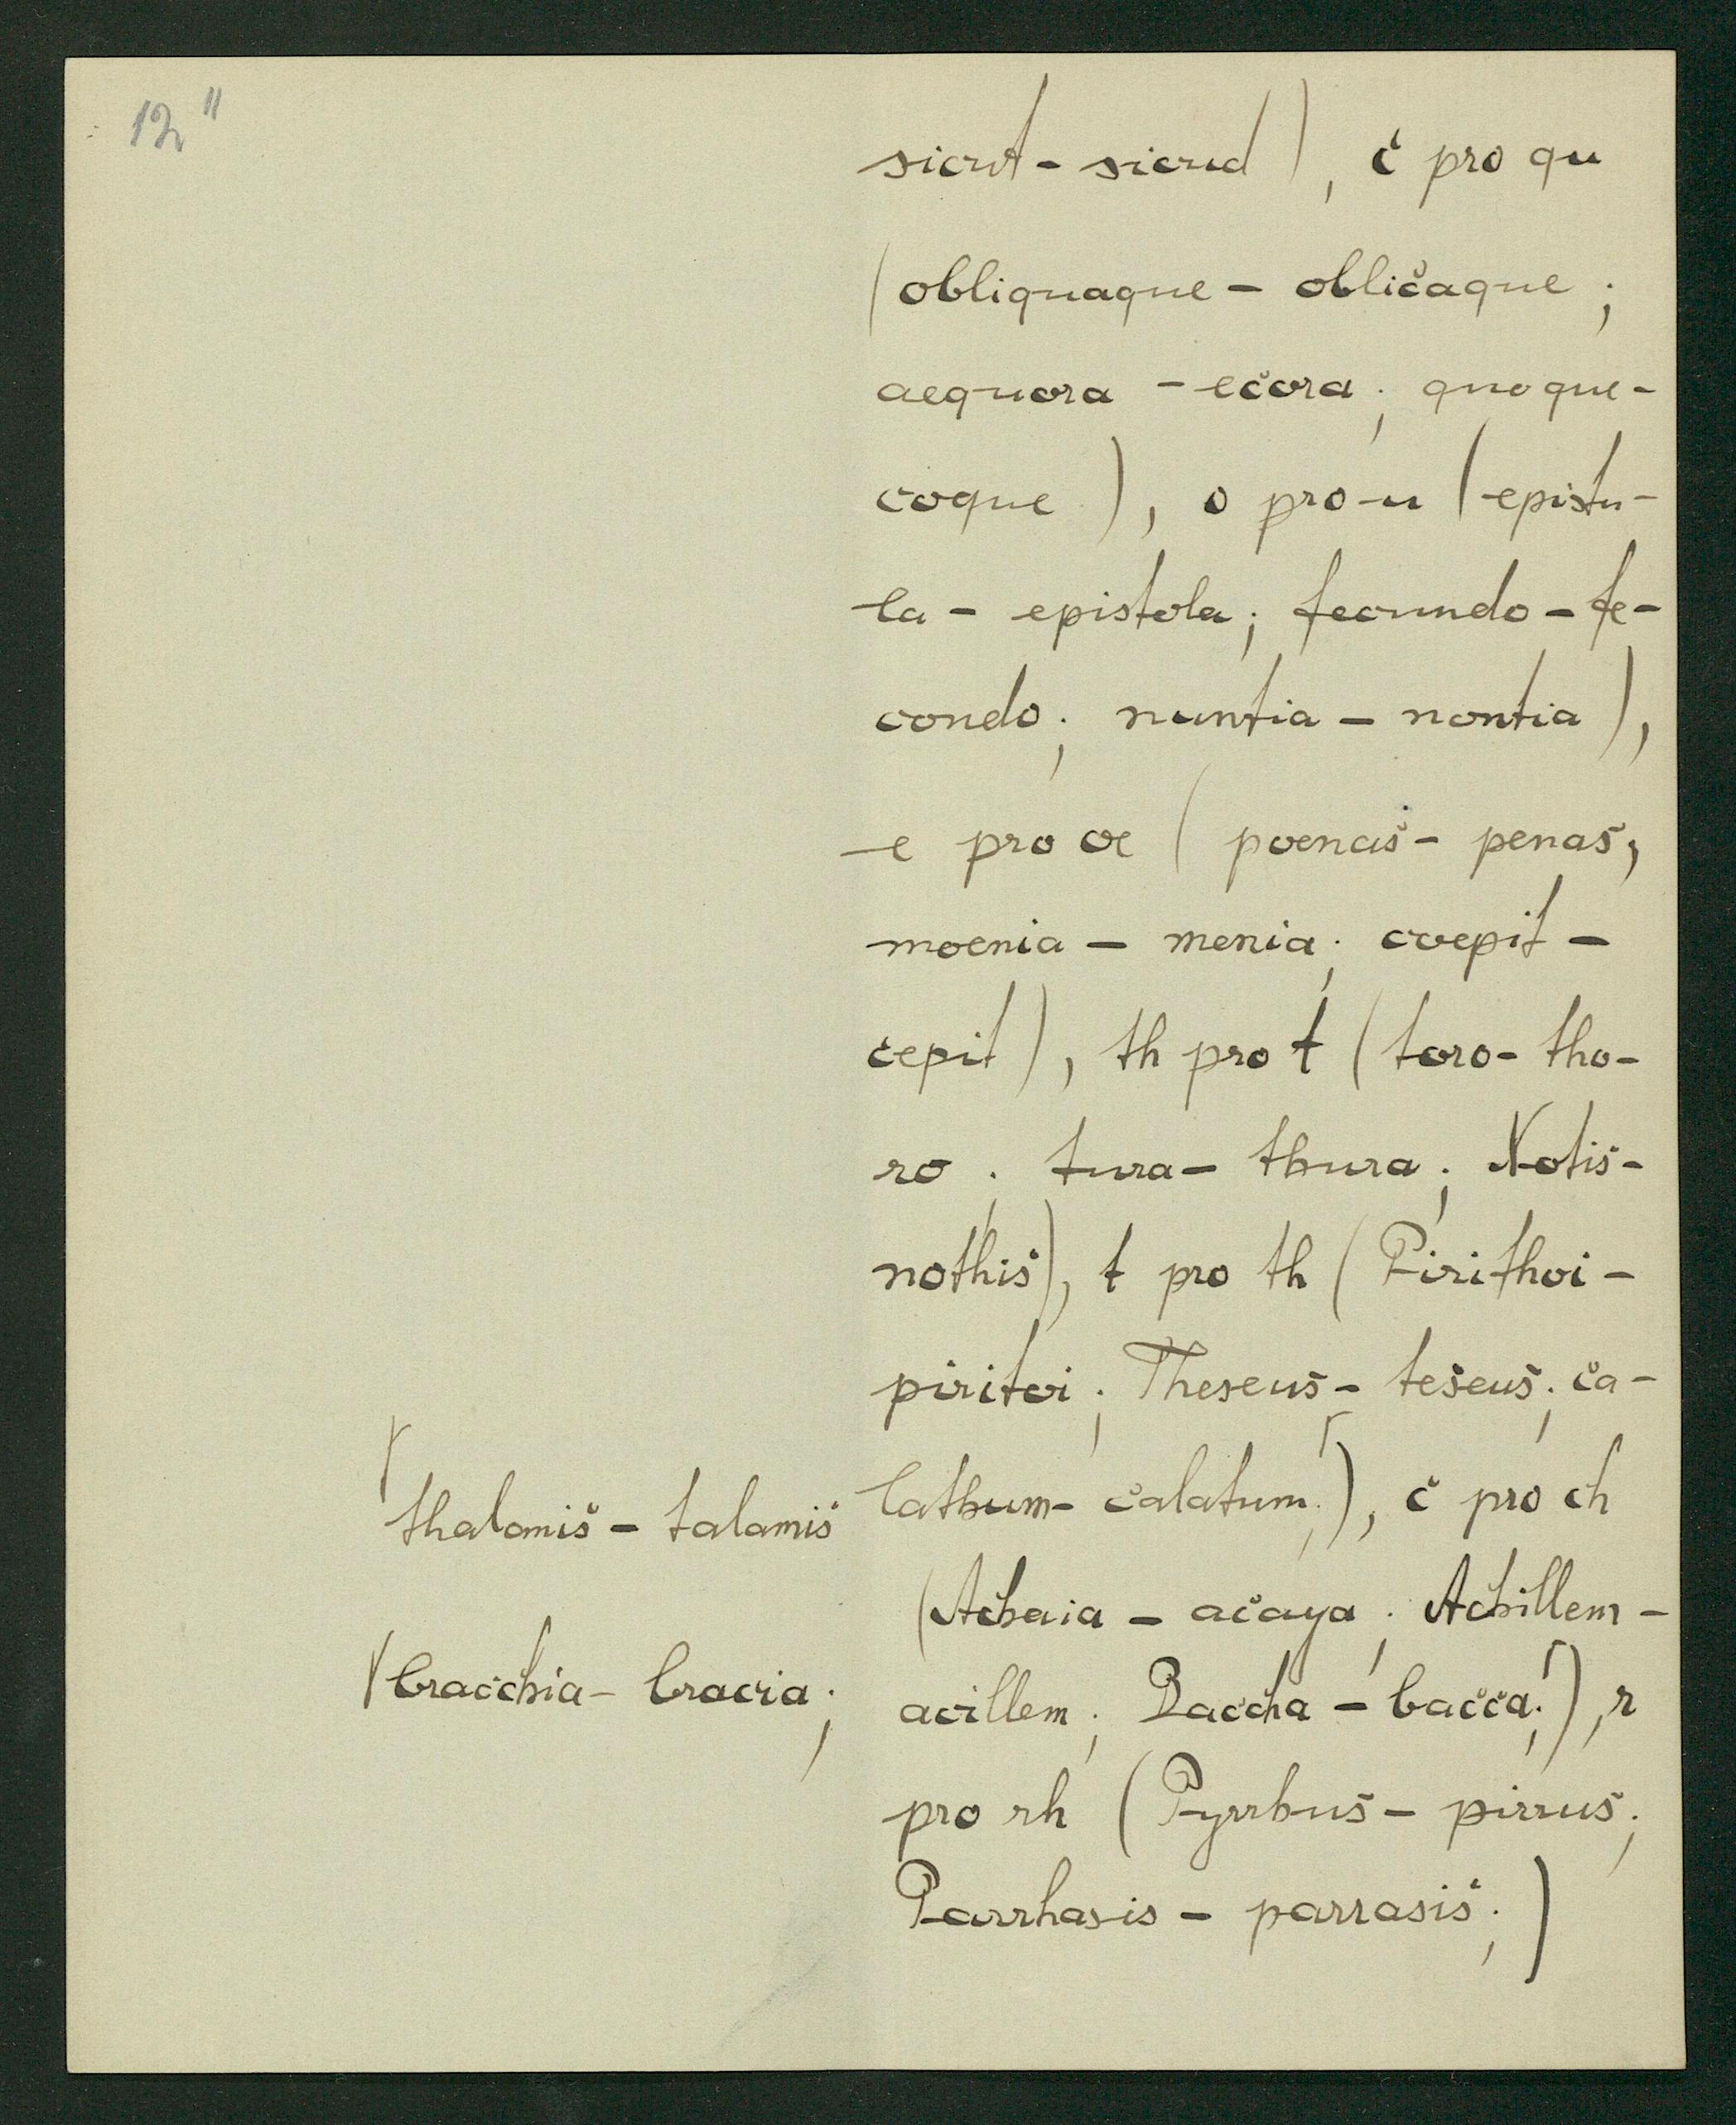 12"
sicut - sicud), c pro qu
(obliquaque - oblicaque;
aequora - ecora; quoque -
coque), o pro u (epistu-
la - epistola; fecundo - fe-
condo; nuntia - nontia),
e pro oe (poenas - penas;
moenia - menia; coepit -
cepit), th pro t (toro - tho-
ro; tura - thura; Notis -
nothis), t pro th (Pirithoi -
piritoi; Theseus - teseus; ca-
lathum - calatum;⌈), c pro ch
⌈thalamis - talamis
(Achaia - acaya; Achillem -
acillem; Baccha - bacca;⌈), r
⌈bracchia - bracia;
pro rh (Pyrrhus - pirrus;
Parrhasis - parrasis;)